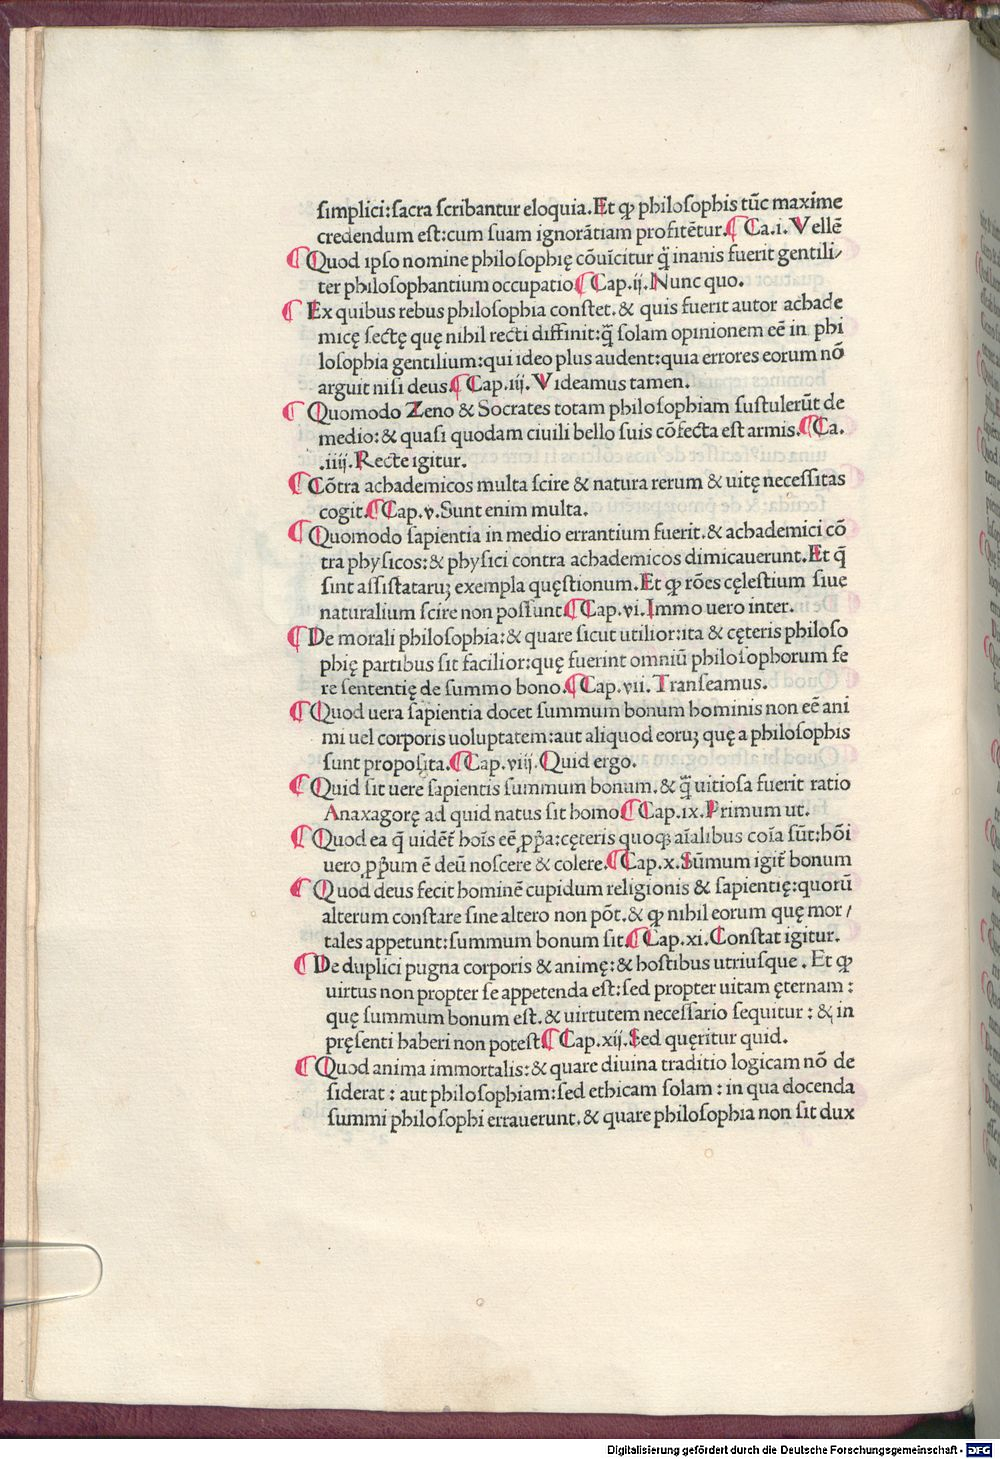 simplici:sacra scribantur eloquia.Et ꝙ philosophis tūc maxime
credendum est:cum suam ignorātiam profitētur.¶Ca.i.Vellē
¶Quod ipso nomine philosophię cōuīcitur q̄ inanis fuerit gentili/
ter philosophantium occupatio¶Cap.ij.Nunc quo.
¶Ex quibus rebus philosophia constet.& quis fuerit autor achade
micę sectę quę nihil recti diffinit:q̄ solam opinionem eē in phi
losophia gentilium:qui ideo plus audent:quia errores eorum nō
arguit nisi deus.¶Cap.iij.Videamus tamen.
¶Quomodo Zeno & Socrates totam philosophiam sustulerūt de
medio:& quasi quodam ciuili bello suis cōfecta est armis.¶Ca.
.iiij.Recte igitur.
¶Cōtra achademicos multa scire & natura rerum & uitę necessitas
cogit.¶Cap.v.Sunt enim multa.
¶Quomodo sapientia in medio errantium fuerit.& achademici cō
tra physicos:& physici contra achademicos dimicauerunt.Et q̄
sint assistataruꝫ exempla quęstionum.Et ꝙ rōes cęlestium siue
naturalium scire non possunt¶Cap.vi.Immo uero inter.
¶De morali philosophia:& quare sicut utilior:ita & cęteris philoso
phię partibus sit facilior:quę fuerint omniū philosophorum fe
re sententię de summo bono.¶Cap.vii.Transeamus.
¶Quod uera sapientia docet summum bonum hominis non eē ani
mi uel corporis uoluptatem:aut aliquod eoruꝫ quę a philosophis
sunt proposita.¶Cap.viij.Quid ergo.
¶Quid sit uere sapientis summum bonum.& q̄ uitiosa fuerit ratio
Anaxagorę ad quid natus sit homo¶Cap.ix.Primum ut.
¶Quod ea q̄ uidēt̄ hoīs eē ꝓp̄a:cęteris quoqꝫ aīalibus coīa sūt:hōi
uero ꝓp̄um ē deū noscere & colere.¶Cap.x.Sūmum igit̄ bonum
¶Quod deus fecit hominē cupidum religionis & sapientię:quorū
alterum constare sine altero non pōt.& ꝙ nihil eorum quę mor/
tales appetunt:summum bonum sit¶Cap.xi.Constat igitur.
¶De duplici pugna corporis & animę:& hostibus utriusque.Et ꝙ
uirtus non propter se appetenda est:sed propter uitam ęternam:
quę summum bonum est.& uirtutem necessario sequitur:& in
pręsenti haberi non potest¶Cap.xij.Sed quęritur quid.
¶Quod anima immortalis:& quare diuina traditio logicam nō de
siderat:aut philosophiam:sed ethicam solam:in qua docenda
summi philosophi errauerunt.& quare philosophia non sit dux
Digitalisierung gefördert durch die Deutsche Forschungsgemeinschaft - DFG